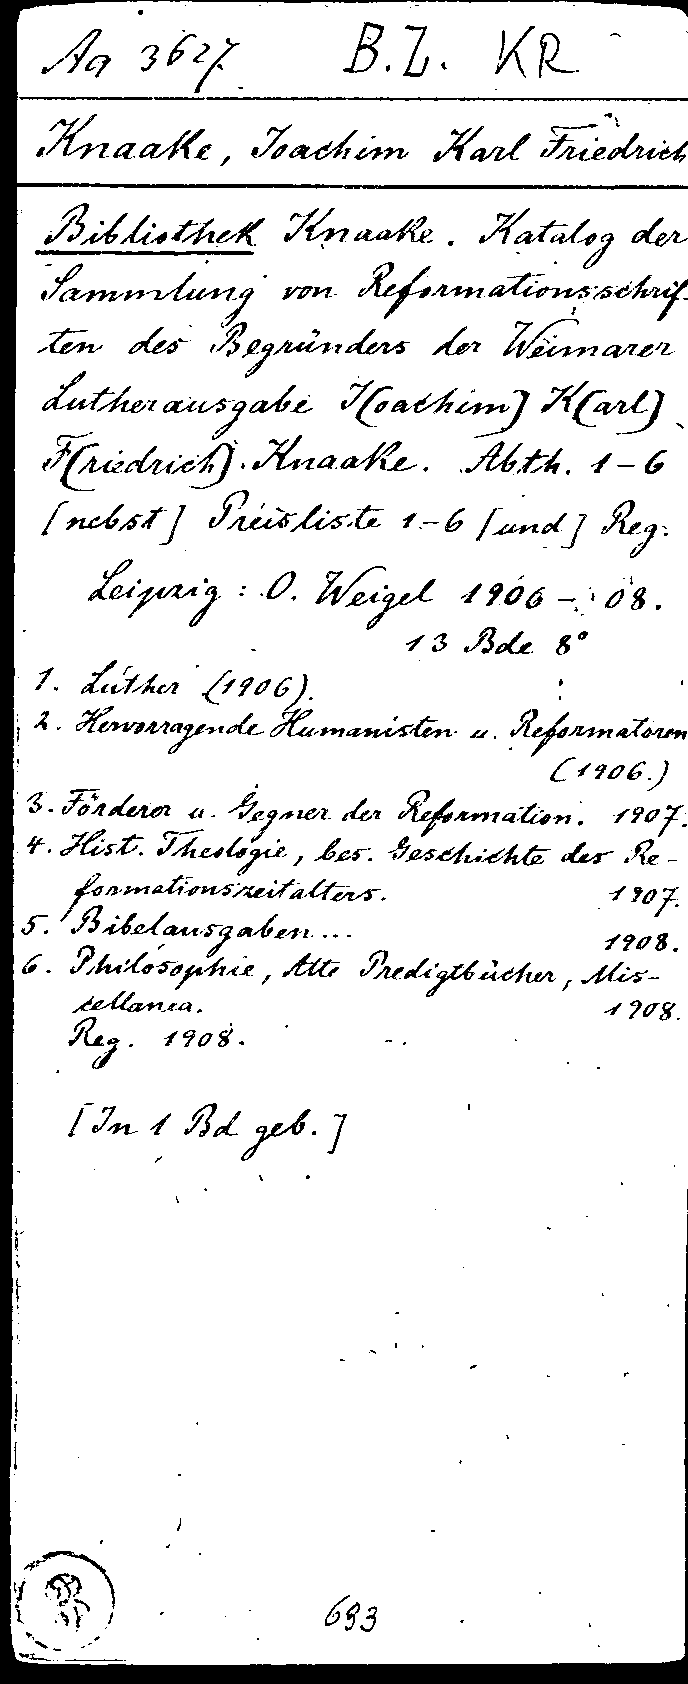 Aa 3627. B.Z. KR
Knaake, Joachim Karl Friedrich
Bibliothek Knaake. Katalog der
Sammlung von Reformationsschrif-
ten des Begründers der Weimarer
Lutherausgabe J[oachim] K[arl]
F[riedrich]. Knaake. Abth. 1-6
[nebst] Preisliste 1-6 [und] Reg.
Leipzig: O. Weigel 1906-08.
13 Bde 8°
1. Luther (1906).
2. Hervorragende Humanisten u. Reformatoren
(1906.)
3. Förderer u. Gegner der Reformation. 1907.
4. Hist. Theologie, bes. Geschichte des Re-
formationszeitalters. 1907.
5. Bibelausgaben... 1908.
6. Philosophie, Alte Predigtbücher, Mis-
cellanea. 1908.
Reg. 1908.
[In 1 Bd geb.]
693